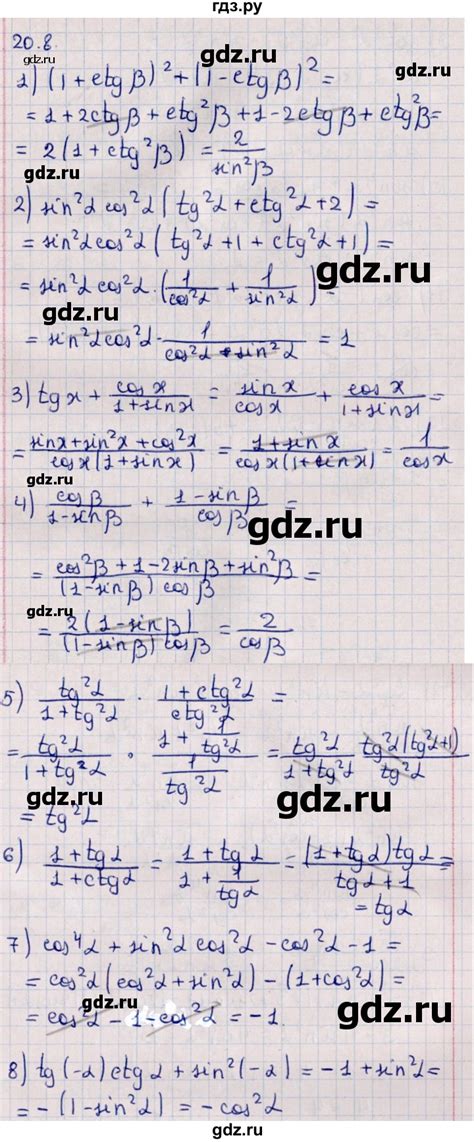 гдз.ру
20.8.
gdz.ru
gdz.ru
1) (1 + ctg β)² + (1 - ctg β)² =
= 1 + 2ctg β + ctg²β + 1 - 2ctg β + ctg²β =
= 2(1 + ctg²β) = 2/sin²β
gdz.ru
2) sin²α cos²α (tg²α + ctg²α + 2) =
= sin²α cos²α (tg²α + 1 + ctg²α + 1) =
gdz.ru
= sin²α cos²α · (1/cos²α + 1/sin²α) =
gdz.ru
= sin²α cos²α · 1/(cos²α · sin²α) = 1
3) tg x + cos x/(1 + sin x) = sin x/cos x + cos x/(1 + sin x) =
gdz.ru
= (sin x + sin²x + cos²x)/(cos x(1 + sin x)) = (1 + sin x)/(cos x(1 + sin x)) = 1/cos x
gdz.ru
4) cos β/(1 - sin β) + (1 - sin β)/cos β =
gdz.ru
= (cos²β + 1 - 2sin β + sin²β)/((1 - sin β) cos β) =
gdz.ru
= 2(1 - sin β)/((1 - sin β) cos β) = 2/cos β
gdz.ru
5) tg²α/(1 + tg²α) · (1 + ctg²α)/ctg²α =
= tg²α/(1 + tg²α) · (1 + 1/tg²α)/(1/tg²α) = tg²α/(1 + tg²α) · tg²α(tg²α + 1)/tg²α
gdz.ru
gdz.ru
= tg²α
6) (1 + tg α)/(1 + ctg α) = (1 + tg α)/(1 + 1/tg α) = (1 + tg α) tg α/(tg α + 1) =
gdz.ru
= tg α
7) cos⁴α + sin²α cos²α - cos²α - 1 =
= cos²α (cos²α + sin²α) - (1 + cos²α) =
gdz.ru
gdz.ru
= cos²α - 1 - cos²α = -1
8) tg(-α) ctg α + sin²(-α) = -1 + sin²α =
= -(1 - sin²α) = -cos²α
gdz.ru
gdz.ru